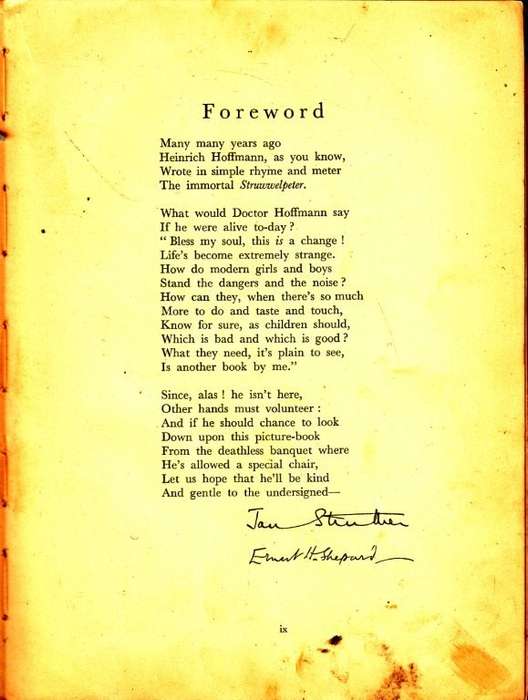 Foreword
Many many years ago
Heinrich Hoffmann, as you know,
Wrote in simple rhyme and meter
The immortal Struwwelpeter.
What would Doctor Hoffmann say
If he were alive to-day?
" Bless my soul, this is a change !
Life's become extremely strange.
How do modern girls and boys
Stand the dangers and the noise ?
How can they, when there's so much
More to do and taste and touch,
Know for sure, as children should,
Which is bad and which is good ?
What they need, it's plain to see,
Is another book by me."
Since, alas ! he isn't here,
Other hands must volunteer :
And if he should chance to look
Down upon this picture-book
From the deathless banquet where
He's allowed a special chair,
Let us hope that he'll be kind
And gentle to the undersigned—
Jan Struther
Ernest H. Shepard
ix